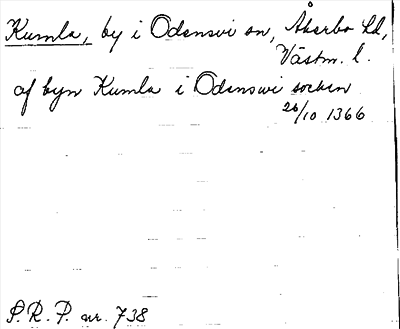 Kumla, by i Odensvi sn, Åkerbo hd,
Västm. l.
af byn Kumla i Odenswi socken
26/10 1366
S.R.P. nr. 738